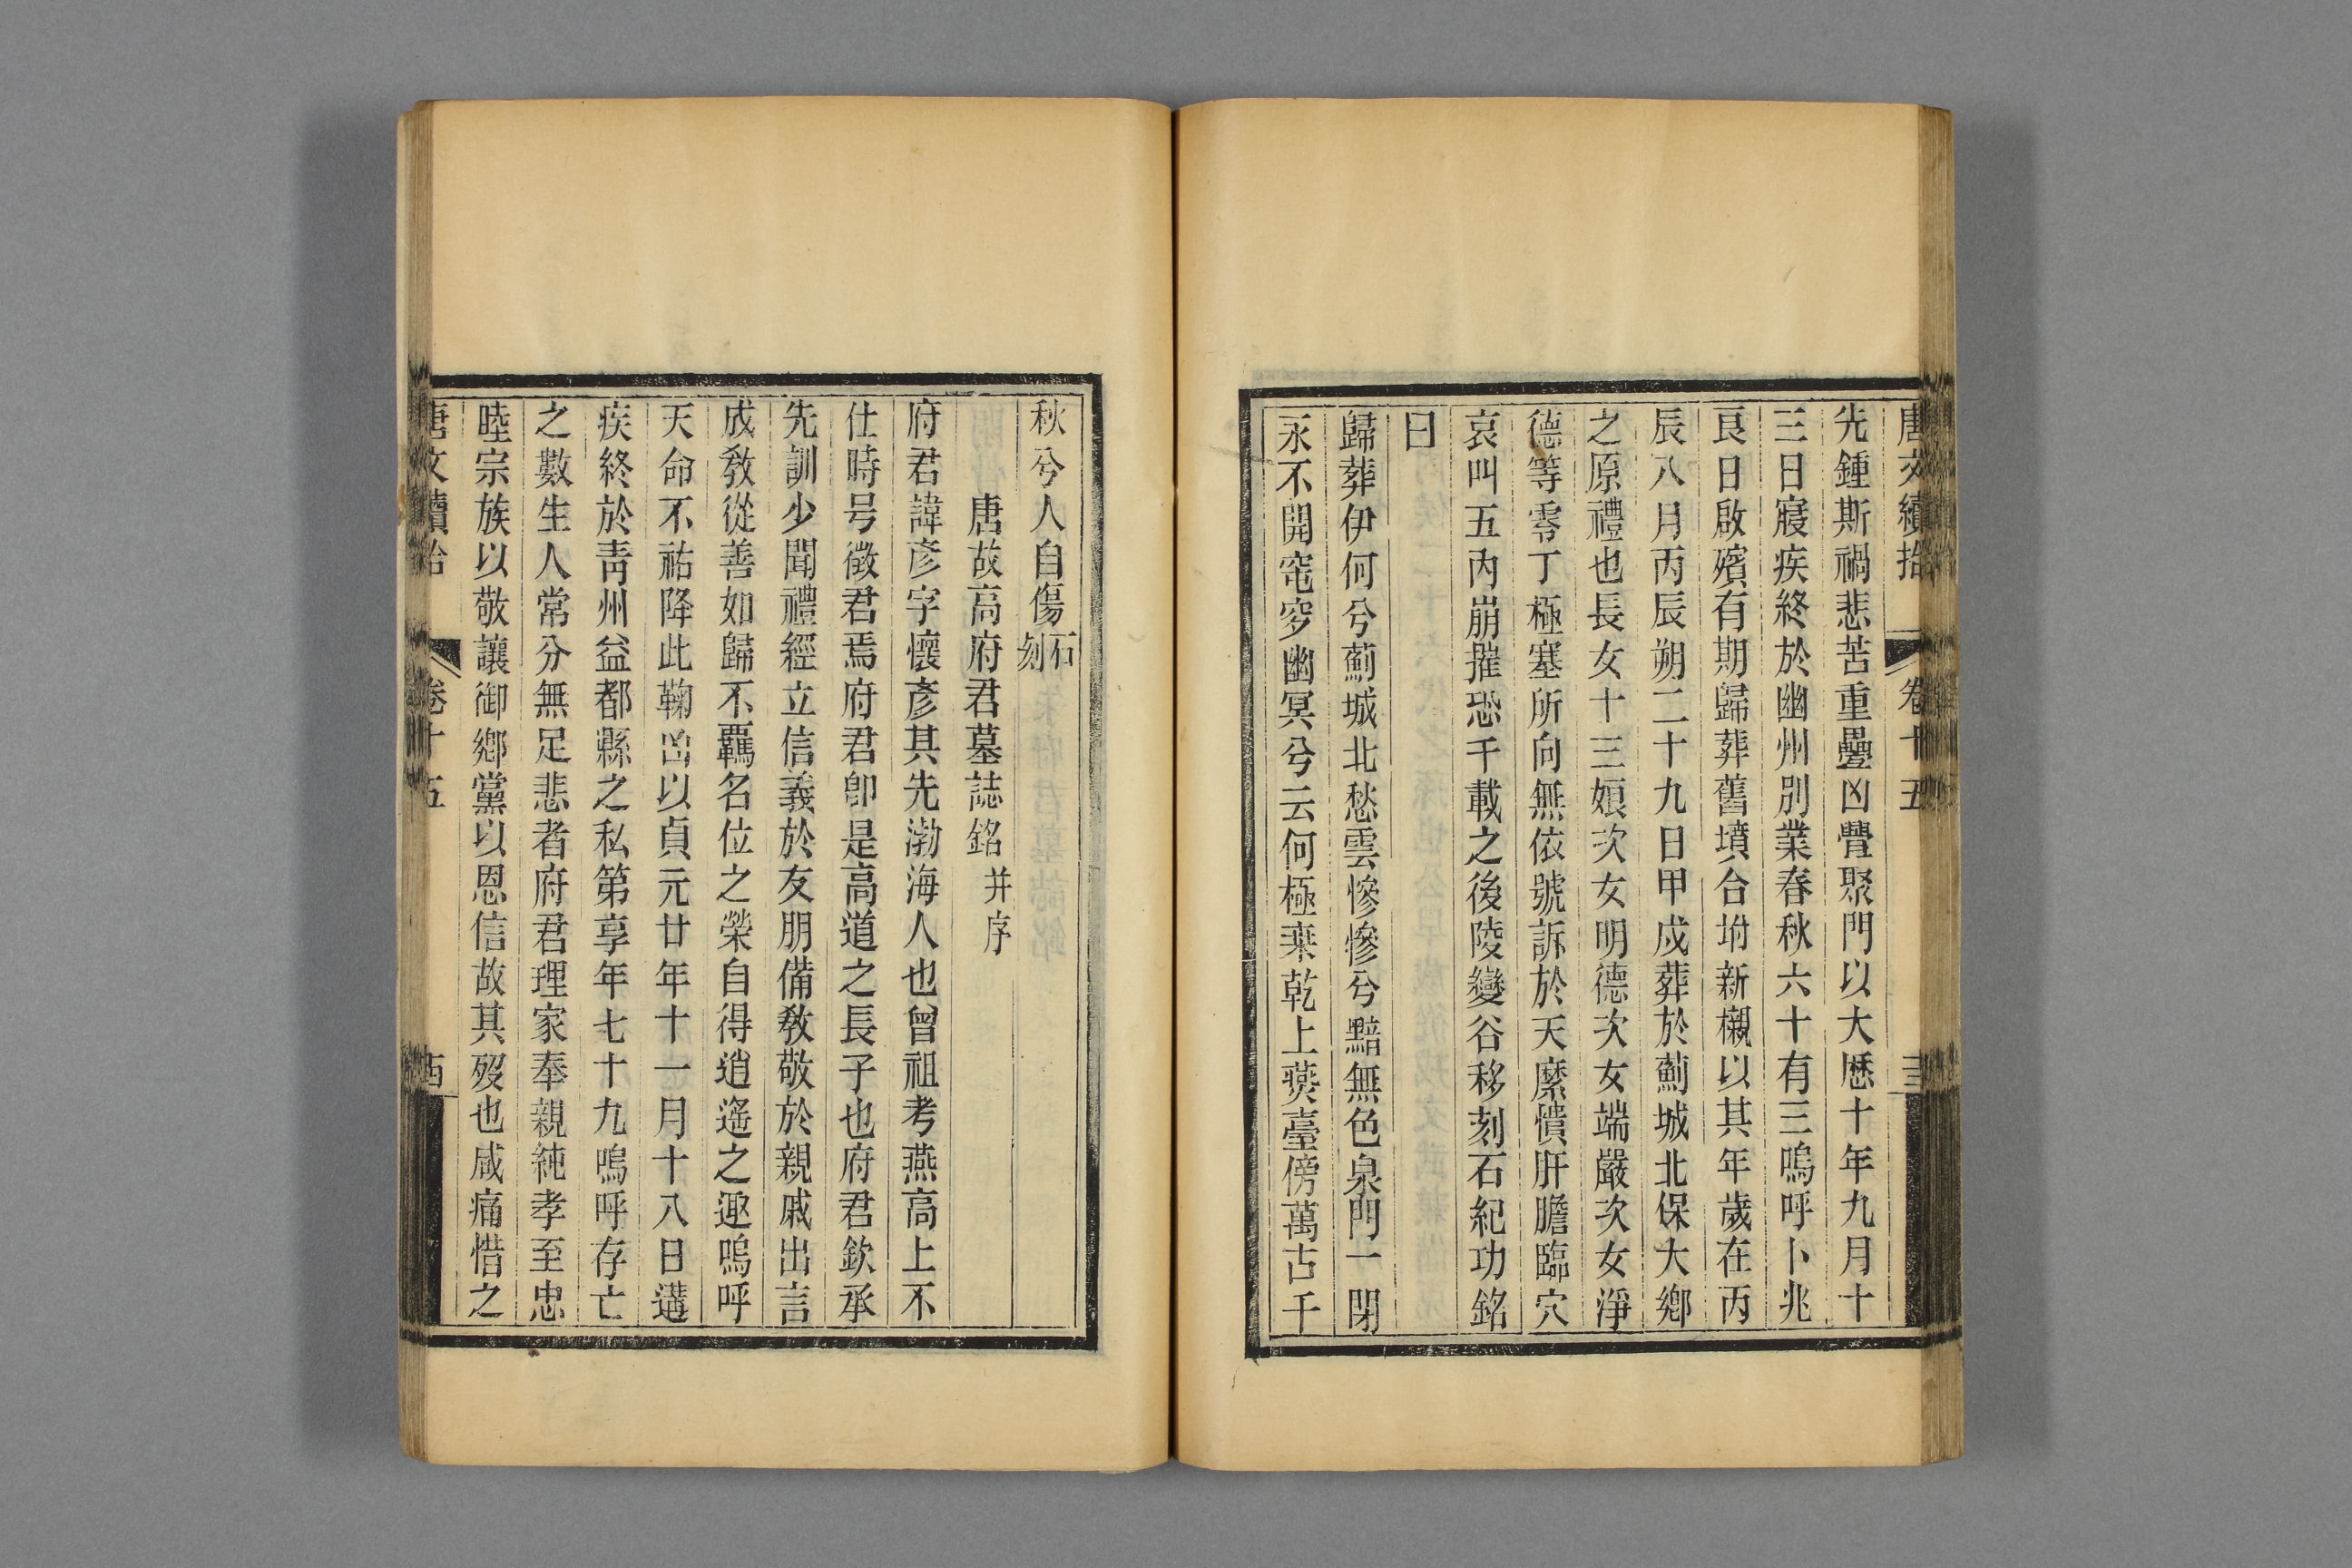 唐文續拾 卷十五 三
先鍾斯禍悲苦重疊凶舋聚門以大厯十年九月十
三日寢疾終於幽州別業春秋六十有三嗚呼卜兆
良日啟殯有期歸葬舊墳合坿新櫬以其年歲在丙
辰八月丙辰朔二十九日甲戍葬於薊城北保大鄉
之原禮也長女十三娘次女明德次女端嚴次女淨
德等零丁極塞所向無依號訴於天縻憒肝膽臨穴
哀叫五內崩摧恐千載之後陵變谷移刻石紀功銘
曰
歸葬伊何兮薊城北愁雲慘慘兮黯無色泉門一閉
永不開窀穸幽冥兮云何極乘乾上燓臺傍萬古千
秋兮人自傷石刻
唐故高府君墓誌銘并序
府君諱彥字懷彥其先渤海人也曾祖考燕高上不
仕時号徵君焉府君卽是高道之長子也府君欽承
先訓少聞禮經立信義於友朋備敎敬於親戚出言
成敎從善如歸不羈名位之榮自得逍遙之趣嗚呼
天命不祐降此鞠凶以貞元廿年十一月十八日遘
疾終於靑州益都縣之私第享年七十九嗚呼存亡
之數生人常分無足悲者府君理家奉親純孝至忠
睦宗族以敬讓御鄉黨以恩信故其歿也咸痛惜之
唐文續拾 卷十五